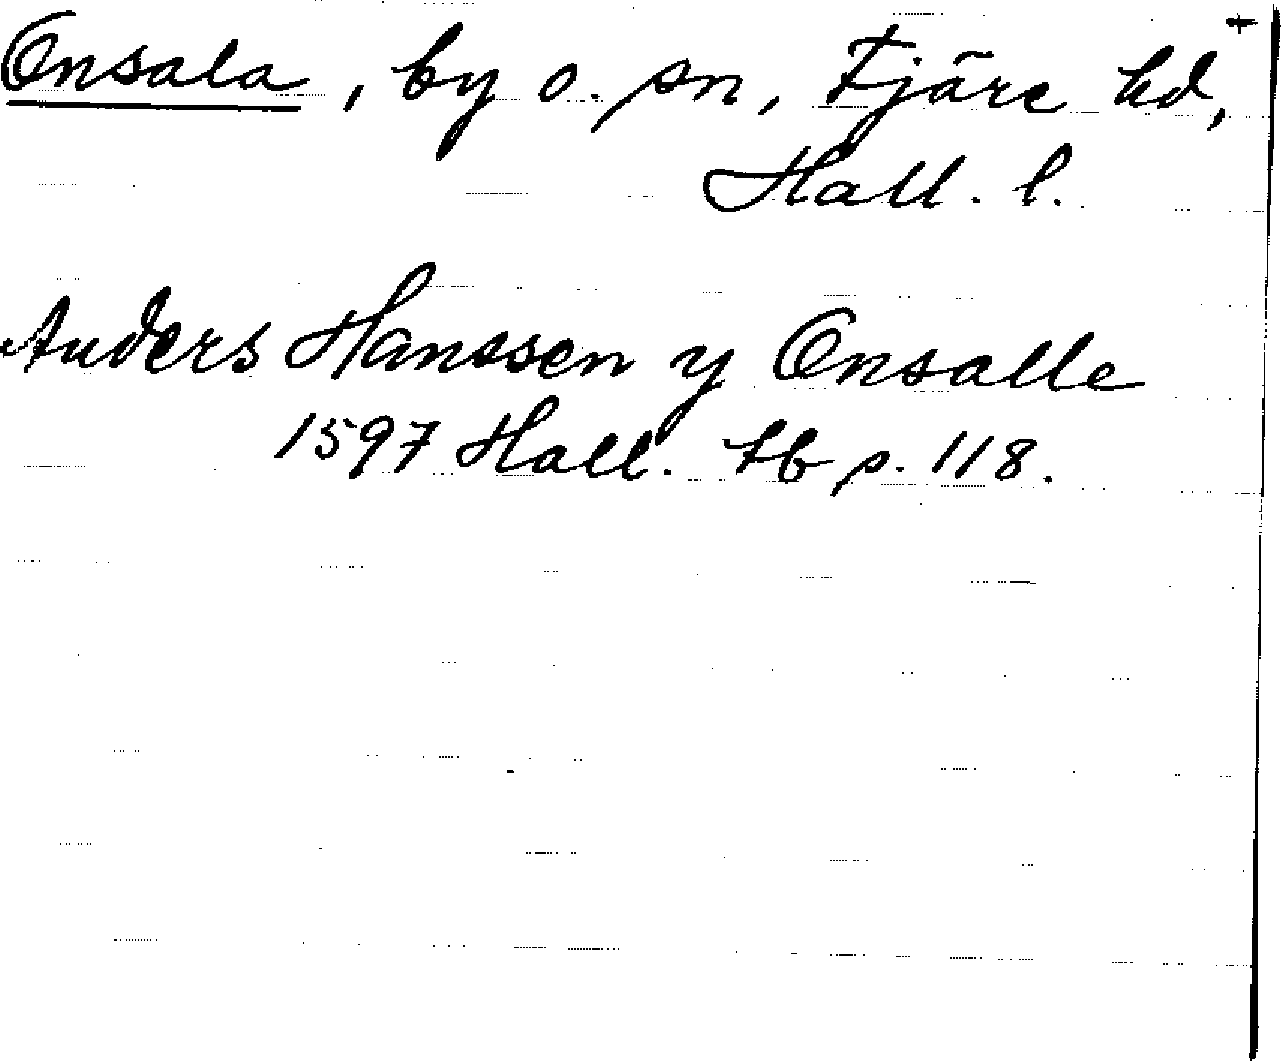 Onsala, by o. sn, Fjäre hd,
Hall. l.
Anders Hanssen y Onsalle
1597 Hall. tb p. 118.